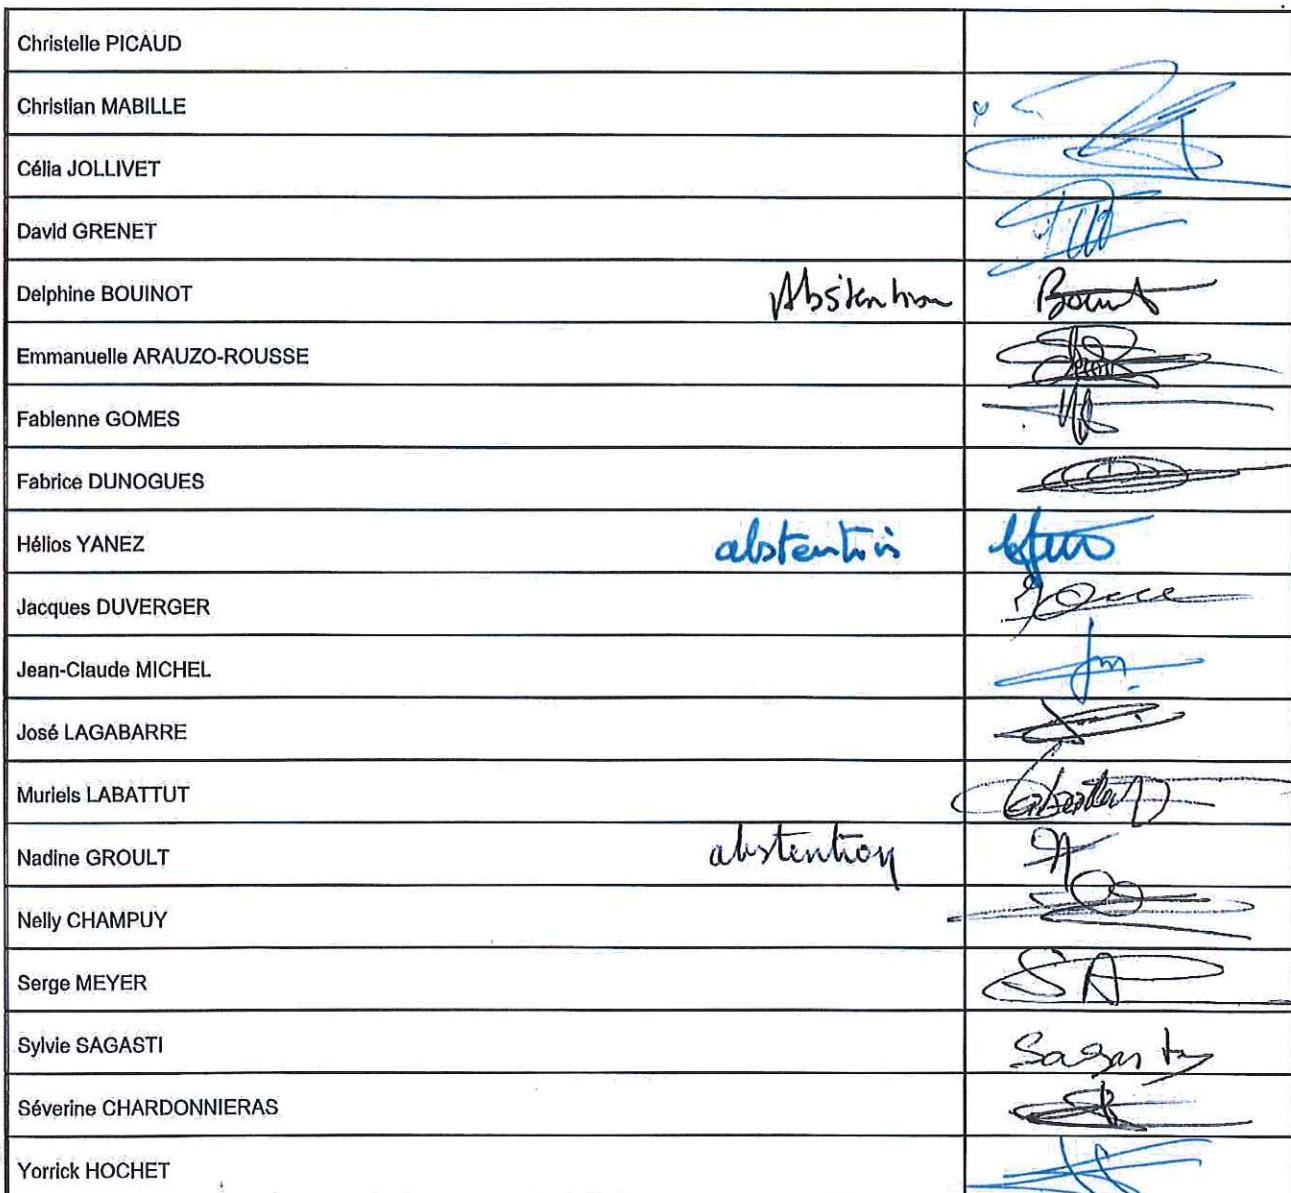 Christelle PICAUD
Christian MABILLE
Célia JOLLIVET
David GRENET
Delphine BOUINOT Abstention
Emmanuelle ARAUZO-ROUSSE
Fabienne GOMES
Fabrice DUNOGUES
Hélios YANEZ abstention
Jacques DUVERGER
Jean-Claude MICHEL
José LAGABARRE
Muriels LABATTUT
Nadine GROULT abstention
Nelly CHAMPUY
Serge MEYER
Sylvie SAGASTI
Séverine CHARDONNIERAS
Yorrick HOCHET